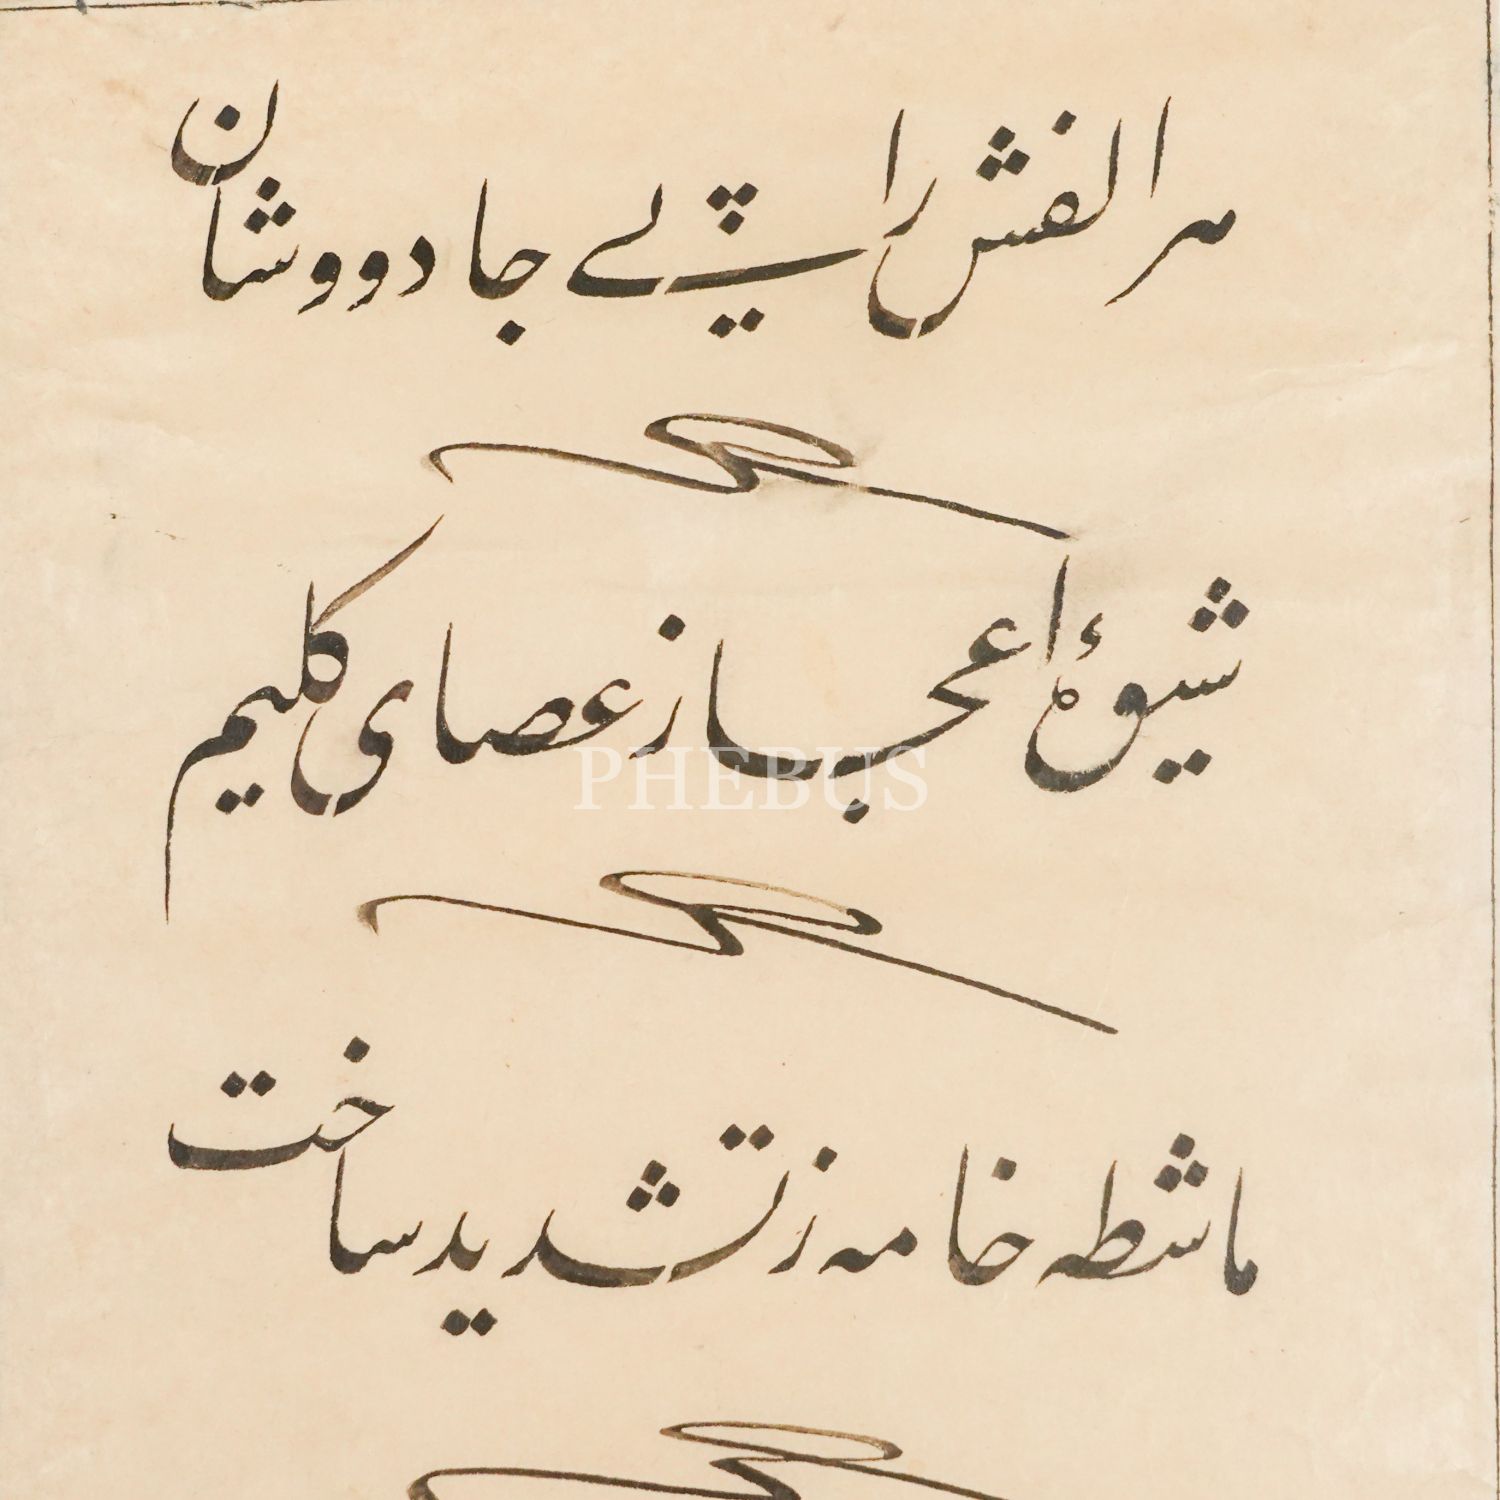 هر الفش را پی لے جادووشان
شیوهٔ اعجاز عصای کلیم
PHEBUS
ماشطه خامه ز تشدید ساخت